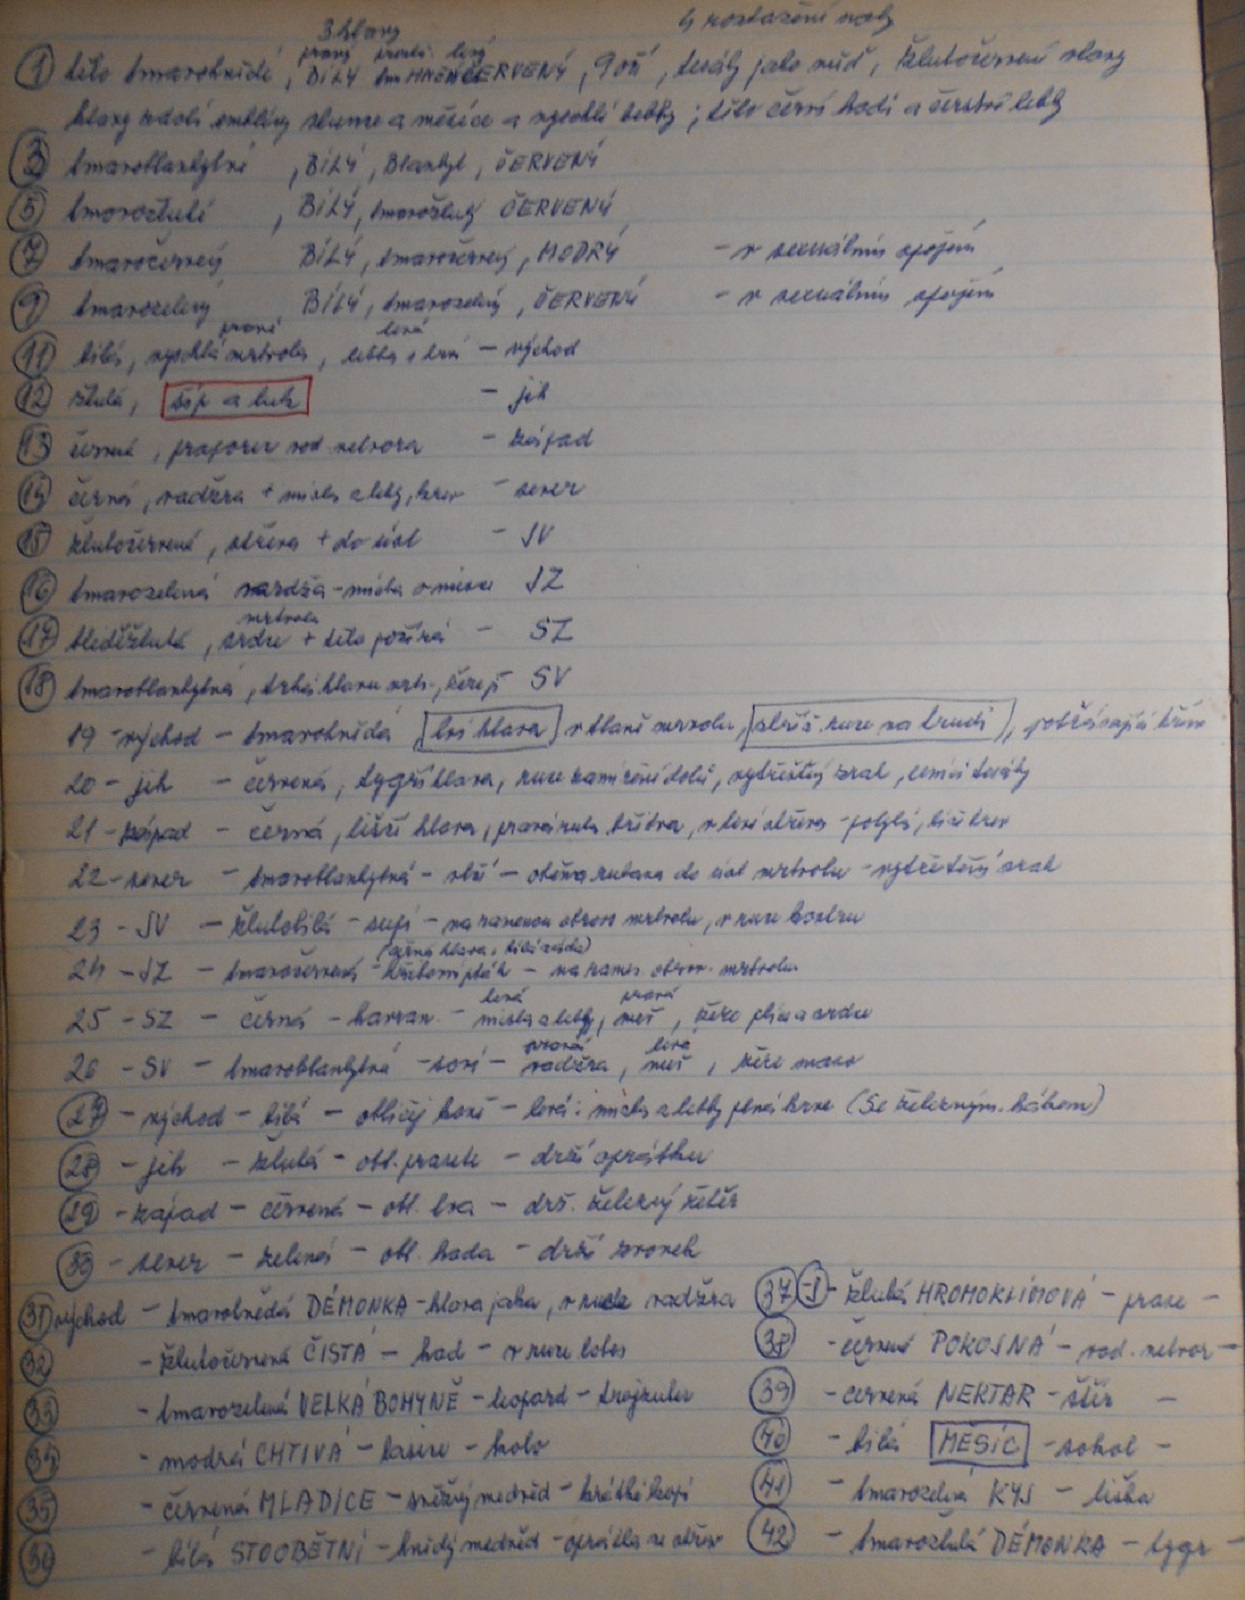 3 hlavy 4 roztažené nohy
pravý prostř. levý
① tělo tmavohnědé, BÍLÝ tmHNĚD ČERVENÝ, 9 očí, tesáky jako měď, žlutočervené vlasy
hlavy zdobí emblémy slunce a měsíce a vyschlé lebky; tělo černí hadi a čerstvé lebky
③ tmavoblankytné, BÍLÝ, Blankyt, ČERVENÝ
⑤ tmavožluté, BÍLÝ, tmavožlutý ČERVENÝ
⑦ tmavočervený BÍLÝ, tmavočervený, MODRÝ - v sexuálním spojení
⑨ tmavozelený BÍLÝ, tmavozelený, ČERVENÝ - v sexuálním spojení
pravá levá
⑪ bílá, vyschlá mrtvola, lebka s krví - východ
⑫ žlutá, šíp a luk - jih
⑬ červená, praporec vod. netvora - západ
⑭ černá, vadžra + miska z leby, krev - sever
⑮ žlutočervená, střeva + do úst - JV
⑯ tmavozelená vardža - miska v misce JZ
mrtvola
⑰ bleděžlutá, srdce + tělo požírá - SZ
⑱ tmavoblankytná, trhá hlavu mrtv., žere ji SV
19 - východ - tmavohnědá lví hlava v tlamě mrtvolu, zkříž. ruce na hrudi, potřásající hřív
20 - jih - červená, tygří hlava, ruce zamířené dolů, vytřeštěný zrak, cení tesáky
21 - západ - černá, liščí hlava, pravá ruka břitva, v levé střeva - polyká, líže krev
22 - sever - tmavoblankytná - vlčí - oběma rukama do úst mrtvolu - vytřeštěný zrak
23 - JV - žlutobílá - supí - na ramenou obrovs. mrtvolu, v ruce kostru
(černá hlava, bílá záda)
24 - JZ - tmavočervená - hřbitovní pták - na rames. obrov. mrtvolu
levá pravá
25 - SZ - černá - havran. - miska z lebky, meč, žere plíce a srdce
pravá levá
26 - SV - tmavoblankytná - soví - vadžra, meč, žere maso
㉗ - východ - bílá - obličej koně - levá: miska z lebky plná krve (se železným. hákem)
㉘ - jih - žlutá - obl. prasete - drží oprátku
㉙ - západ - červená - obl. lva - drž. železný řetěz
㉚ - sever - zelená - obl. hada - drží zvonek
㉛ východ - tmavohnědá DÉMONKA - hlava jaka, v ruce vadžra
㉜ - žlutočervená ČISTÁ - had - v ruce lotos
㉝ - tmavozelená VELKÁ BOHYNĚ - leopard - trojzubec
㉞ - modrá CHTIVÁ - lasice - kolo
㉟ - červená MLADICE - sněžný medvěd - krátké kopí
㊱ - bílá STOOBĚTNÍ - hnědý medvěd - oprátka ze střev
㊲ - J - žlutá HROMOKLÍNOVÁ - prase -
㊳ - červená POKOJNÁ - vod. netvor -
㊴ - červená NEKTAR - štír -
㊵ - bílá MĚSÍC - sokol -
㊶ - tmavozelená KYJ - liška
㊷ - tmavožlutá DÉMONKA - tygr -